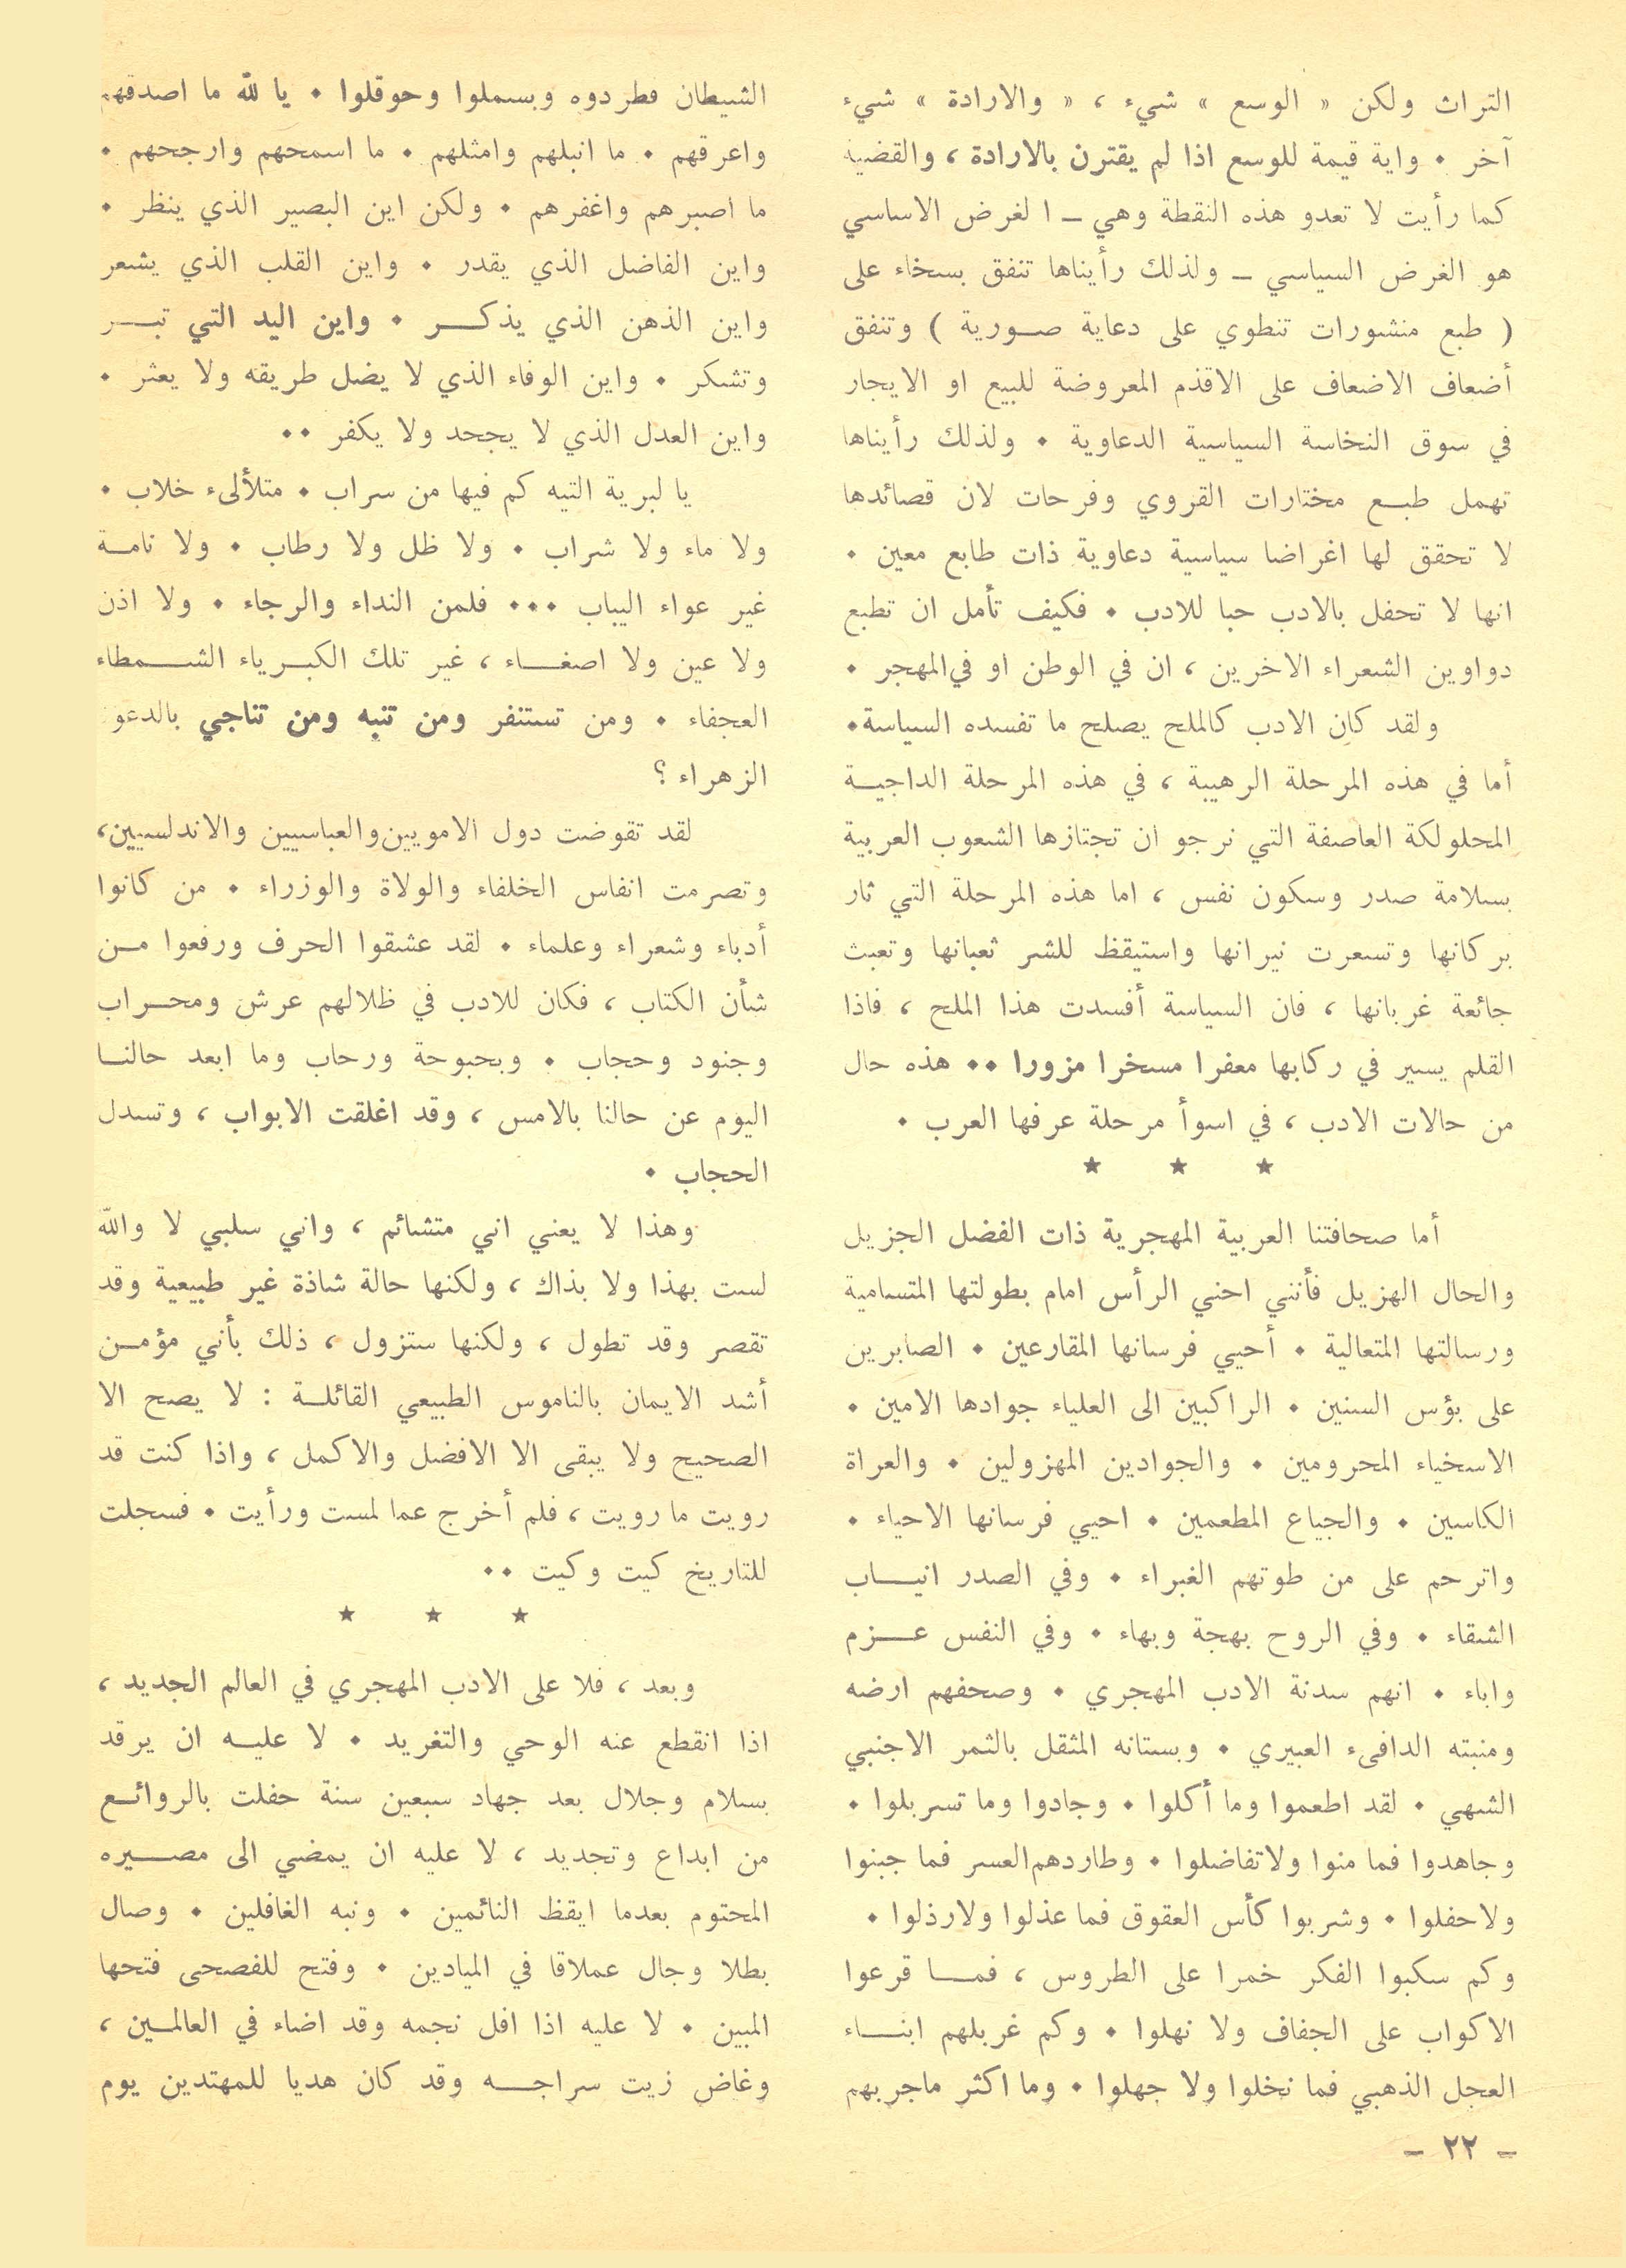 التراث ولكن « الوسع » شيء ، « والارادة » شيء
آخر . واية قيمة للوسع اذا لم يقترن بالارادة ، والقضية
كما رأيت لا تعدو هذه النقطة وهي ــ ا لغرض الاساسي
هو الغرض السياسي ــ ولذلك رأيناها تنفق بسخاء على
( طبع منشورات تنطوي على دعاية صورية ) وتنفق
أضعاف الاضعاف على الاقذم المعروضة للبيع او الايجار
في سوق النخاسة السياسية الدعاوية . ولذلك رأيناها
تهمل طبع مختارات القروي وفرحات لان قصائدها
لا تحقق لها اغراضا سياسية دعاوية ذات طابع معين .
انها لا تحفل بالادب حبا للادب . فكيف تأمل ان تطبع
دواوين الشعراء الاخرين ، ان في الوطن او في المهجر .
ولقد كان الادب كالملح يصلح ما تفسده السياسة .
أما في هذه المرحلة الرهيبة ، في هذه المرحلة الداجية
المحلولكة العاصفة التي نرجو ان تجتازها الشعوب العربية
بسلامة صدر وسكون نفس ، اما هذه المرحلة التي ثار
بركانها وتسعرت نيرانها واستيقظ للشر ثعبانها وتعبث
جائعة غربانها ، فان السياسة أفسدت هذا الملح ، فاذا
القلم يسير في ركابها معفرا مسخرا مزورا .. هذه حال
من حالات الادب ، في اسوأ مرحلة عرفها العرب .
★ ★ ★
أما صحافتنا العربية المهجرية ذات الفضل الجزيل
والحال الهزيل فأنني احني الرأس امام بطولتها المتسامية
ورسالتها المتعالية . أحيي فرسانها المقارعين . الصابرين
على بؤس السنين . الراكبين الى العلياء جوادها الامين .
الاسخياء المحرومين . والجوادين المهزولين . والعراة
الكاسين . والجياع المطعمين . احيي فرسانها الاحياء .
واترحم على من طوتهم الغبراء . وفي الصدر انياب
الشقاء . وفي الروح بهجة وبهاء . وفي النفس عزم
واباء . انهم سدنة الادب المهجري . وصحفهم ارضه
ومنبته الدافىء العبيري . وبستانه المثقل بالثمر الاجنبي
الشهي . لقد اطعموا وما أكلوا . وجادوا وما تسربلوا .
وجاهدوا فما منوا ولا تفاضلوا . وطاردهم العسر فما جبنوا
ولا حفلوا . وشربوا كأس العقوق فما عذلوا ولا رذلوا .
وكم سكبوا الفكر خمرا على الطروس ، فما قرعوا
الاكواب على الجفاف ولا نهلوا . وكم غربلهم ابناء
العجل الذهبي فما نخلوا ولا جهلوا . وما اكثر ما جربهم
الشيطان فطردوه وبسملوا وحوقلوا . يا لله ما اصدقهم
واعرقهم . ما انبلهم وامثلهم . ما اسمحهم وارجحهم .
ما اصبرهم واغفرهم . ولكن اين البصير الذي ينظر .
واين الفاضل الذي يقدر . واين القلب الذي يشعر
واين الذهن الذي يذكر . واين اليد التي تبر
وتشكر . واين الوفاء الذي لا يضل طريقه ولا يعثر .
واين العدل الذي لا يجحد ولا يكفر ..
يا لبرية التيه كم فيها من سراب . متلألىء خلاب .
ولا ماء ولا شراب . ولا ظل ولا رطاب . ولا نامة
غير عواء اليباب ... فلمن النداء والرجاء . ولا اذن
ولا عين ولا اصغاء ، غير تلك الكبرياء الشمطاء
العجفاء . ومن تستنفر ومن تنبه ومن تناجي بالدعو
الزهراء ؟
لقد تقوضت دول الامويين والعباسيين والاندلسيين،
وتصرمت انفاس الخلفاء والولاة والوزراء . من كانوا
أدباء وشعراء وعلماء . لقد عشقوا الحرف ورفعوا من
شأن الكتاب ، فكان للادب في ظلالهم عرش ومحراب
وجنود وحجاب . وبحبوحة ورحاب وما ابعد حالنا
اليوم عن حالنا بالامس ، وقد اغلقت الابواب ، وتسدل
الحجاب .
وهذا لا يعني اني متشائم ، واني سلبي لا والله
لست بهذا ولا بذاك ، ولكنها حالة شاذة غير طبيعية وقد
تقصر وقد تطول ، ولكنها ستزول ، ذلك بأني مؤمن
أشد الايمان بالناموس الطبيعي القائلة : لا يصح الا
الصحيح ولا يبقى الا الافضل والاكمل ، واذا كنت قد
رويت ما رويت ، فلم أخرج عما لمست ورأيت . فسجلت
للتاريخ كيت وكيت ..
★ ★ ★
وبعد ، فلا على الادب المهجري في العالم الجديد ،
اذا انقطع عنه الوحي والتغريد . لا عليه ان يرقد
بسلام وجلال بعد جهاد سبعين سنة حفلت بالروائع
من ابداع وتجديد ، لا عليه ان يمضي الى مصيره
المحتوم بعدما ايقظ النائمين . ونبه الغافلين . وصال
بطلا وجال عملاقا في الميادين . وفتح للفصحى فتحها
المبين . لا عليه اذا افل نجمه وقد اضاء في العالمين ،
وغاض زيت سراجه وقد كان هديا للمهتدين يوم
– ٢٢ –